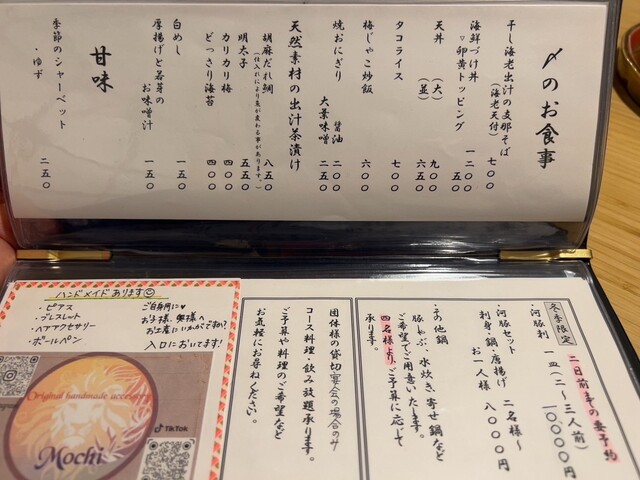 〆のお食事
干し海老出汁の支那そば
(海老天付) 七〇〇
海鮮づけ丼 一二〇〇
▽卵黄トッピング 五〇
天丼 (大) 九〇〇
(並) 六五〇
タコライス 七〇〇
梅じゃこ炒飯 六〇〇
焼おにぎり 醤油 二〇〇
大葉味噌 二五〇
天然素材の出汁茶漬け
胡麻だれ鯛 八五〇
(仕入れにより魚が変わる事があります。)
明太子 五五〇
カリカリ梅 四〇〇
どっさり海苔 四〇〇
白めし 一五〇
厚揚げと若芽の
お味噌汁 一五〇
甘味
季節のシャーベット
・ゆず 二五〇
冬季限定
二日前までの要予約
・河豚刺 一皿(二〜三人前)
一〇〇〇〇円
・河豚セット
刺身・鍋・唐揚げ 二名様〜
お一人様 八〇〇〇円
・その他鍋
豚しゃぶ、水炊き、寄せ鍋など
ご希望でご用意いたします。
四名様より、ご予算に応じて
承ります。
団体様の貸切宴会の場合のみ
コース料理・飲み放題承ります。
ご予算や料理のご希望など
お気軽にお尋ねください。
ハンドメイドあります
・ピアス
・ブレスレット
・ヘアアクセサリー
・ボールペン
ご自身用に♥
お子様、奥様へ
お土産にいかがですか?
入口においてます!
Original handmade accessory
Mochi
TikTok